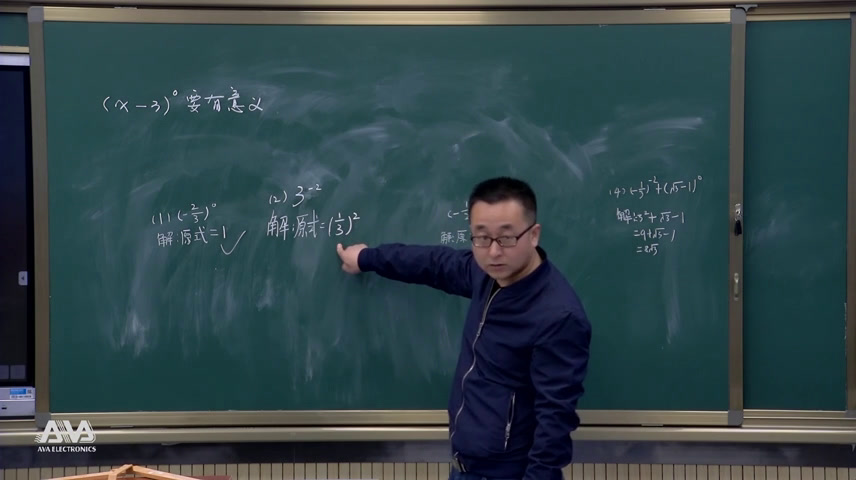 (x-3)⁰要有意义
(1) (-2/3)⁰
解:原式=1
(2) 3⁻²
解:原式=(1/3)²
(-1/3
解:原
(4) (-1/3)⁻²+(√5-1)⁰
解:3²+√5-1
=9+√5-1
=8√5
AVA
AVA ELECTRONICS